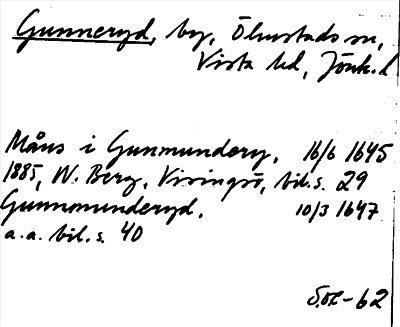 Gunneryd, by, Ölmstads sn,
Vista hd, Jönk. l
Måns i Gunmundery, 16/6 1645
1885, W. Berg, Visingsö, bil. s. 29
Gunnomunderyd, 10/3 1647
a. a. bil. s. 40
-62